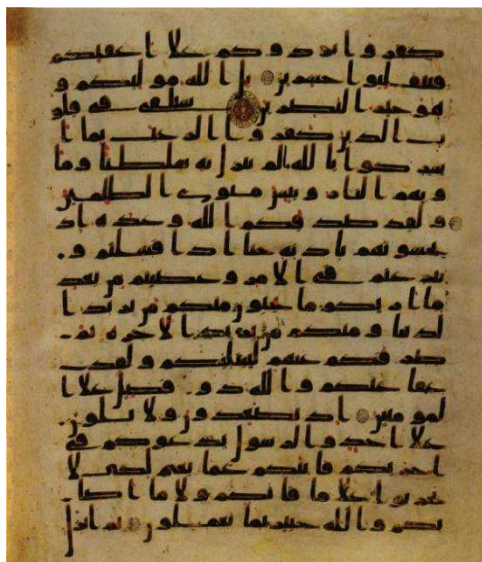 كفروا يردوكم علا اعقبكم
فتنقلبوا خسرين بل الله موليكم و
هو خير النصرين سنلقى فى قلو
ب الذين كفروا الرعب بما ا
شركوا بالله ما لم ينزل به سلطنا وما
ويهم النار وبئس مثوى الظلمين
ولقد صدقكم الله وعده اذ
تحسونهم باذنه حتا اذا فشلتم و
تنزعتم فى الامر وعصيتم من بعد
ما اريكم ما تحبون منكم من يريد ا
لدنيا ومنكم من يريد الاخرة ثم
صرفكم عنهم ليبتليكم ولقد
عفا عنكم والله ذو فضل علا ا
لمومنين اذ تصعدون ولا تلون
علا احد والرسول يدعوكم فى
اخريكم فاثبكم غما بغم لكى لا
تحزنوا علا ما فاتكم ولا ما اصا
بكم والله خبير بما تعملون ثم انزل